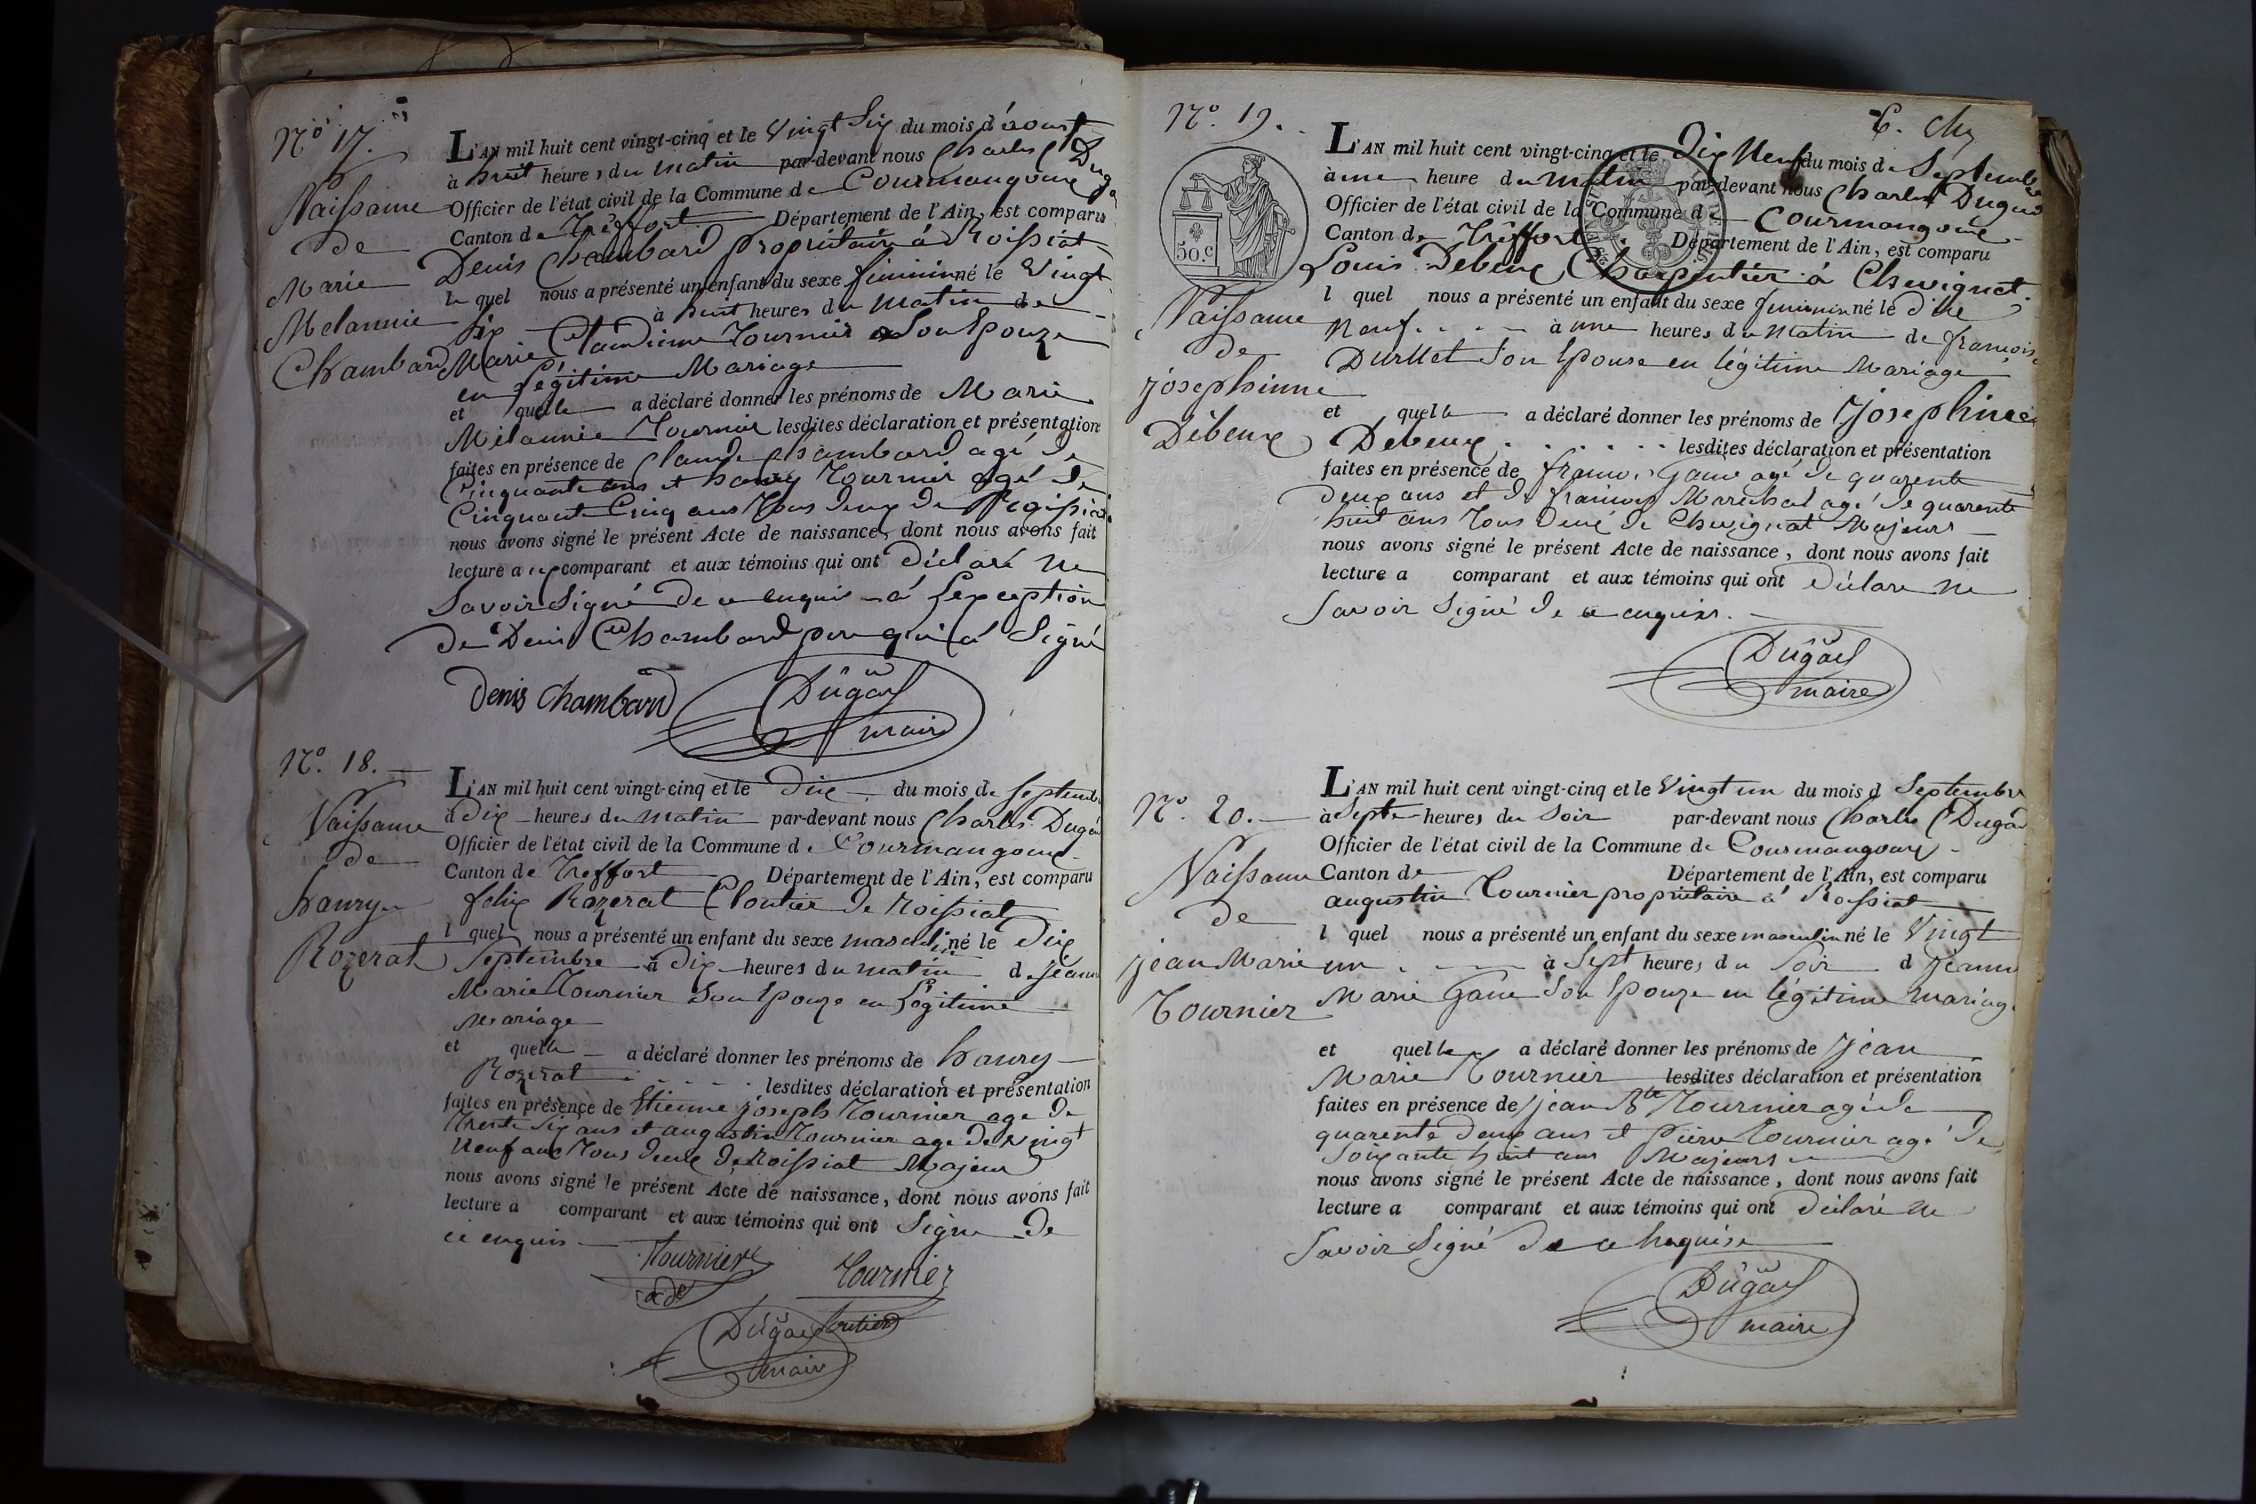 No 17.
Naissance
de
Marie
Melannie
Chambard
L'AN mil huit cent vingt-cinq et le Vingt Six du mois d'aoust
à huit heures du matin par-devant nous Charles Dugas
Officier de l'état civil de la Commune de Courmangoux
Canton de Tréffort Département de l'Ain, est comparu
Denis Chambard propriétaire à Roissiat
le quel nous a présenté un enfant du sexe féminin né le Vingt
Six à huit heures du matin de
Marie Claudine Tournier Son Epouze
en légitime Mariage
et quelle a déclaré donner les prénoms de Marie
Mélannie Tournier lesdites déclaration et présentation
faites en présence de Claude Chambard agé de
Cinquante ans et Tournier agé de
Cinquante Cinq ans Tous deux de Roissiat
nous avons signé le présent Acte de naissance, dont nous avons fait
lecture au comparant et aux témoins qui ont déclaré ne
Savoir Signé de ce enquis à Lexception
de Denis Chambard père qui à Signé
denis chambard
Dugas
maire
No. 18.
Naissance
de
haury
Rozerat
L'AN mil huit cent vingt-cinq et le dix du mois de Septembre
à dix heures du matin par-devant nous Charles Dugas
Officier de l'état civil de la Commune de Courmangoux
Canton de Treffort Département de l'Ain, est comparu
felix Rozerat Cloutier de Roissiat
l quel nous a présenté un enfant du sexe masculin né le Dix
Septembre à Dix heures du matin de Jeanne
Marie Tournier Son Epouze en Légitime
Mariage
et quelle a déclaré donner les prénoms de haury
Rozerat lesdites déclaration et présentation
faites en présence de Etienne joseph Tournier age de
Trente Six ans et augustin Tournier age de Vingt
Neuf ans Tous deux de Roissiat Majeur
nous avons signé le présent Acte de naissance, dont nous avons fait
lecture a comparant et aux témoins qui ont Signé de
ce enquis
Tournier
Tournier
Dugas
maire
No. 19.
50.c
Naissance
de
josephinne
Débeux
L'AN mil huit cent vingt-cinq et le Dix Neuf du mois de Septembre
à une heure du matin par-devant nous Charles Dugas
Officier de l'état civil de la Commune de Courmangoux
Canton de Tréffort Département de l'Ain, est comparu
Louis Debeux Charpentier à Chevignat
l quel nous a présenté un enfant du sexe féminin né le dix
Neuf à une heures du Matin de francoise
Durllet Son Epouse en légitime Mariage
et quelle a déclaré donner les prénoms de Josephine
Debeux lesdites déclaration et présentation
faites en présence de francois Gaur agé de quarente
Deux ans et de francois Maréchal agé de quarente
huit ans Tous deux de Chevignat Majeurs
nous avons signé le présent Acte de naissance, dont nous avons fait
lecture a comparant et aux témoins qui ont Déclare ne
Savoir Signé de ce enquis.
Dugas
maire
No. 20.
Naissance
de
jean Marie
Tournier
L'AN mil huit cent vingt-cinq et le Vingt un du mois d Septembre
à Septe heures du Soir par-devant nous Charles Dugas
Officier de l'état civil de la Commune de Courmangoux
Canton de Département de l'Ain, est comparu
augustin Tournier propriétaire à Roissiat
l quel nous a présenté un enfant du sexe masculin né le Vingt
un à Sept heures du Soir d Jeanne
Marie Son Epouze en légitime mariage
et quelle a déclaré donner les prénoms de Jean
Marie Tournier lesdites déclaration et présentation
faites en présence de jean Bte Tournier agé de
quarente Deux ans et pierre Tournier agé de
Soixante huit ans Majeurs
nous avons signé le présent Acte de naissance, dont nous avons fait
lecture a comparant et aux témoins qui ont déclaré ne
Savoir Signé de ce
Dugas
maire